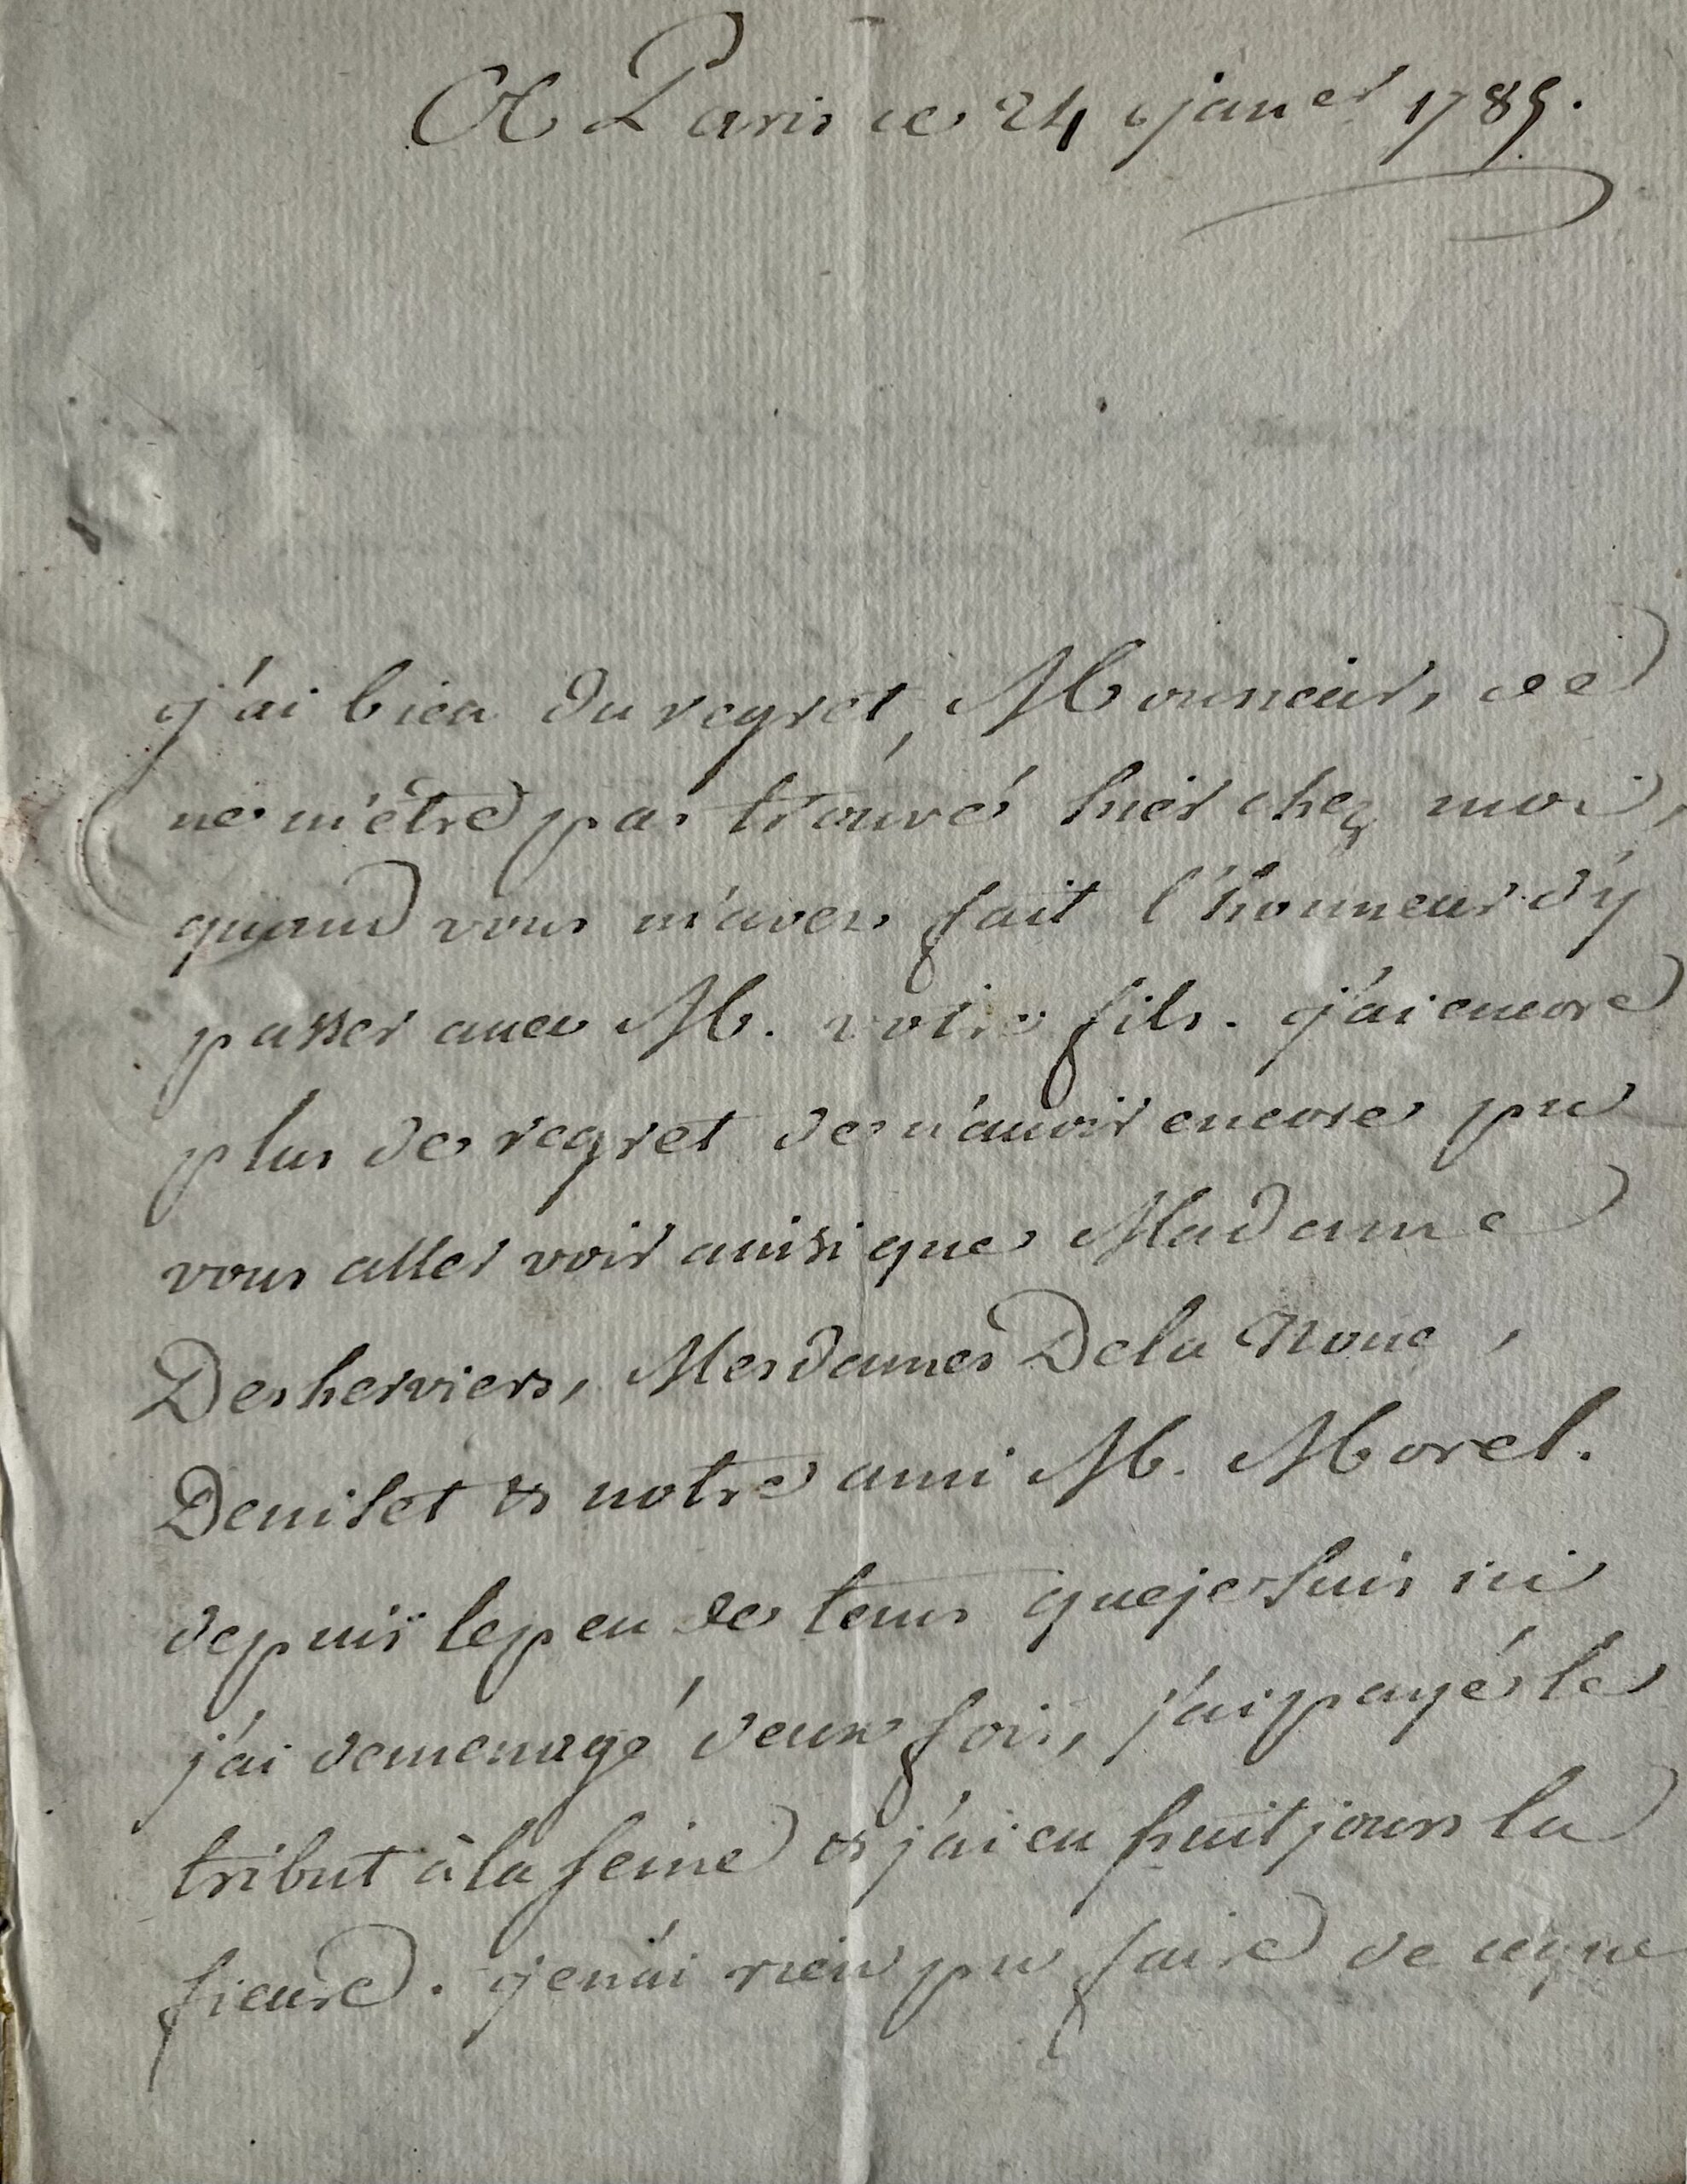 A Paris ce 24 janer 1789.
j'ai bien du regret, Monsieur, de
ne m'être pas trouvé hier chez moi,
quand vous m'avez fait l'honneur d'y
passer avec M. votre fils. j'ai encore
plus de regret de n'avoir encore pu
vous aller voir ainsi que Madame
Desherviers, Mesdames De la Noue,
Deniset & notre ami M. Morel.
depuis le peu de tems que je suis ici
j'ai demenagé deux fois, j'ai payé le
tribut à la seine & j'ai eu huit jours la
fievre. je n'ai rien pu faire de ce que